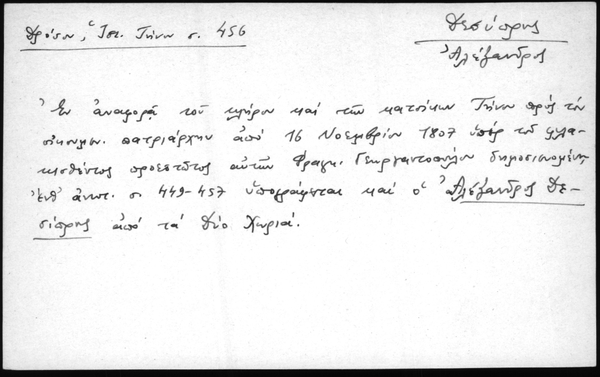 Δρόσου, Ἱστ. Τήνου σ. 456
Δεσύπρης
Ἀλέξανδρος
Ἐν ἀναφορᾷ τοῦ κλήρου καί τῶν κατοίκων Τήνου πρός τόν
οἰκουμ. πατριάρχην ἀπό 16 Νοεμβρίου 1807 ὑπέρ τοῦ φυλα-
κισθέντος προεστῶτος αὐτῶν Φραγκ. Γεωργαντοπούλου δημοσιευομένῃ
ἐνθ' ἀνωτ. σ. 449-457 ὑπογράφεται καί ὁ Ἀλέξανδρος Δε-
σύπρης ἀπό τά Δύο Χωριά.